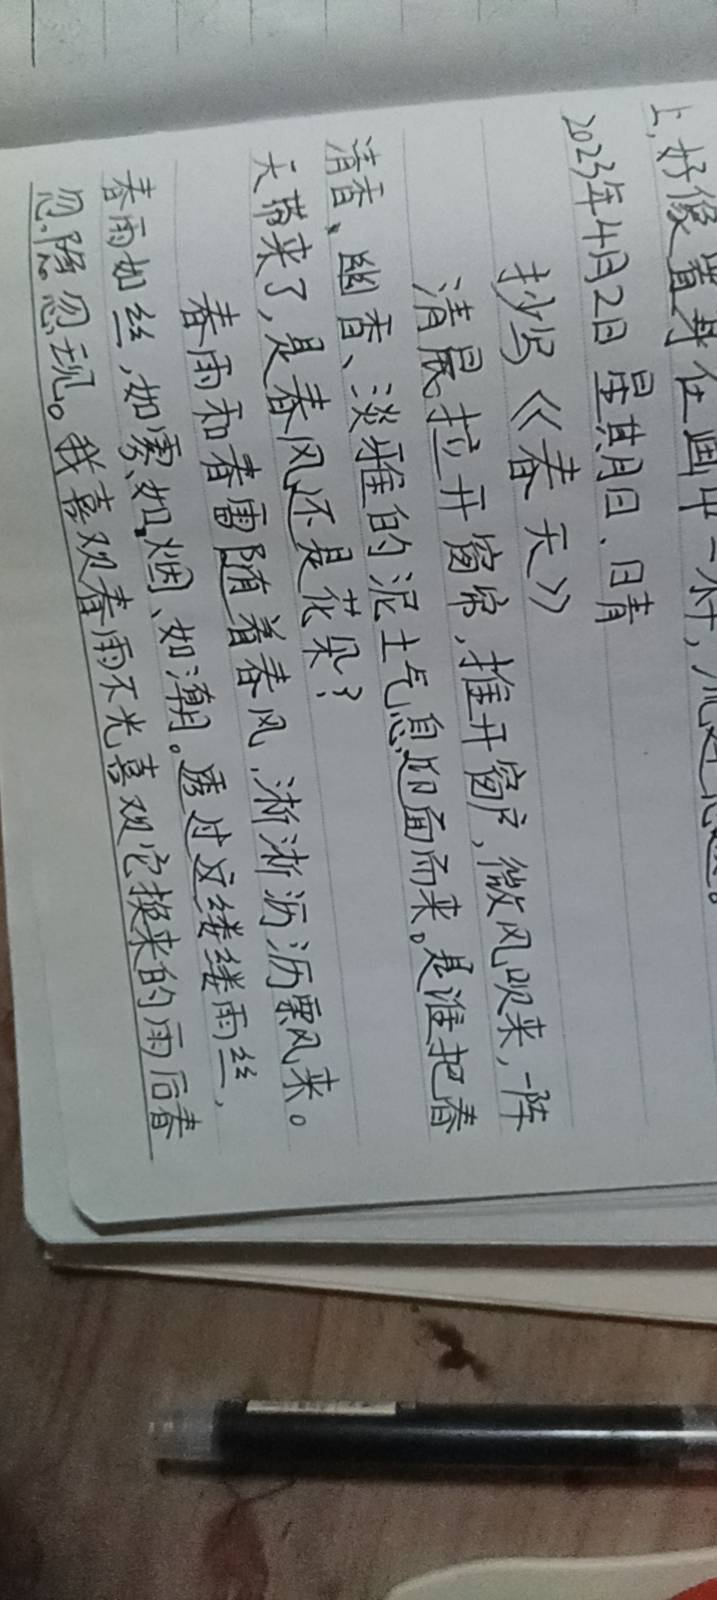 上,好像置身在画中一样,
2023年4月2日 星期日、晴
抄写《春天》
清晨拉开窗帘,推开窗户,微风吹来,一阵
清香、幽香、淡雅的泥土气息迎面而来。是谁把春
天带来了,是春风还是花朵?
春雨和春雷随着春风,淅淅沥沥飘来。
春雨如丝,如雾、如烟、如潮。透过这缕缕雨丝,
忽隐忽现。我喜欢春雨不光喜欢它换来的雨后春